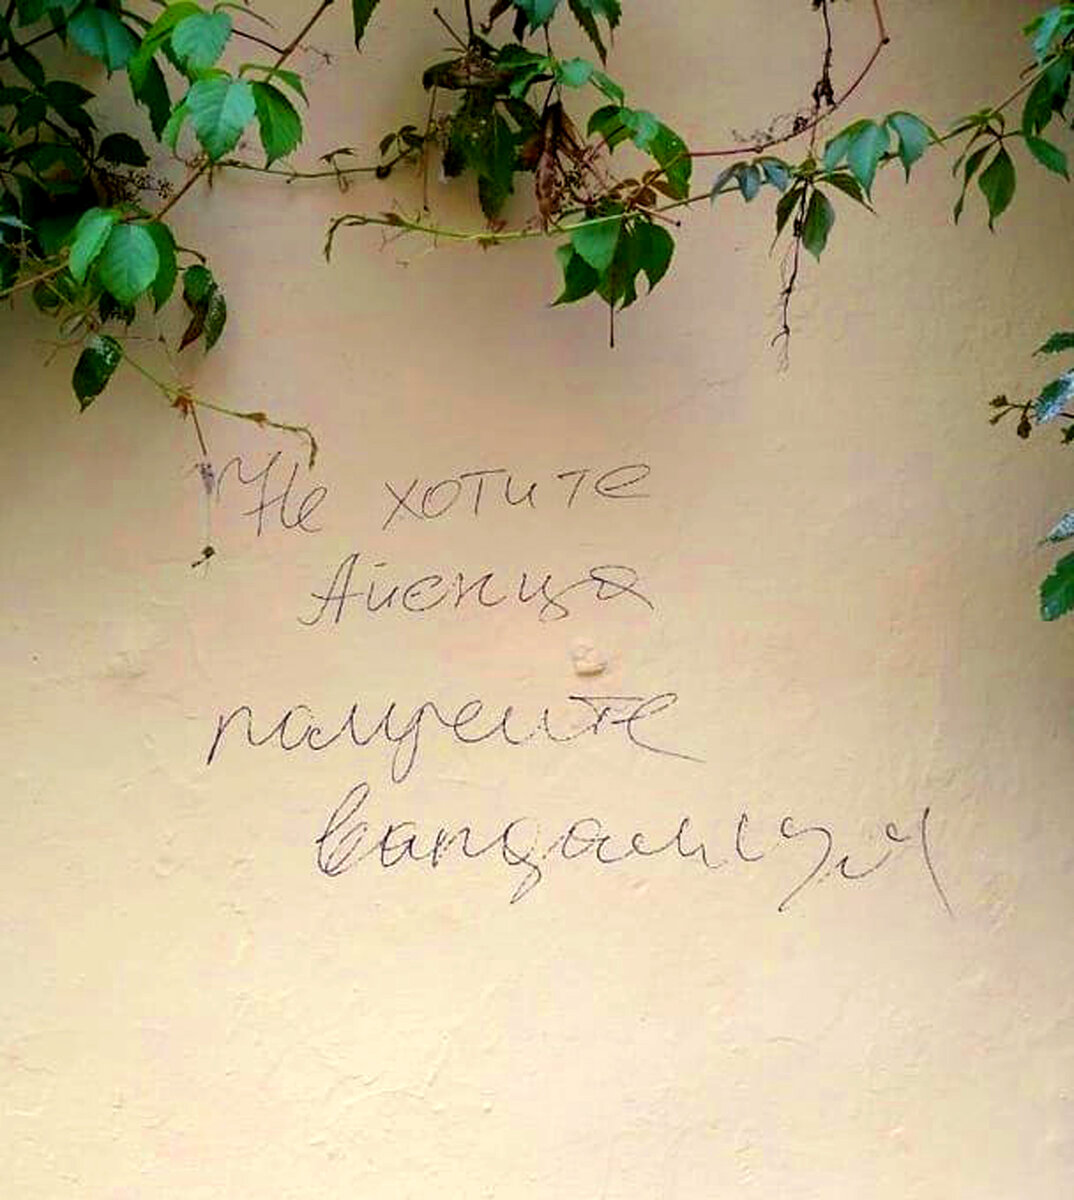 Не хотите
Айсица
получите
вандализм